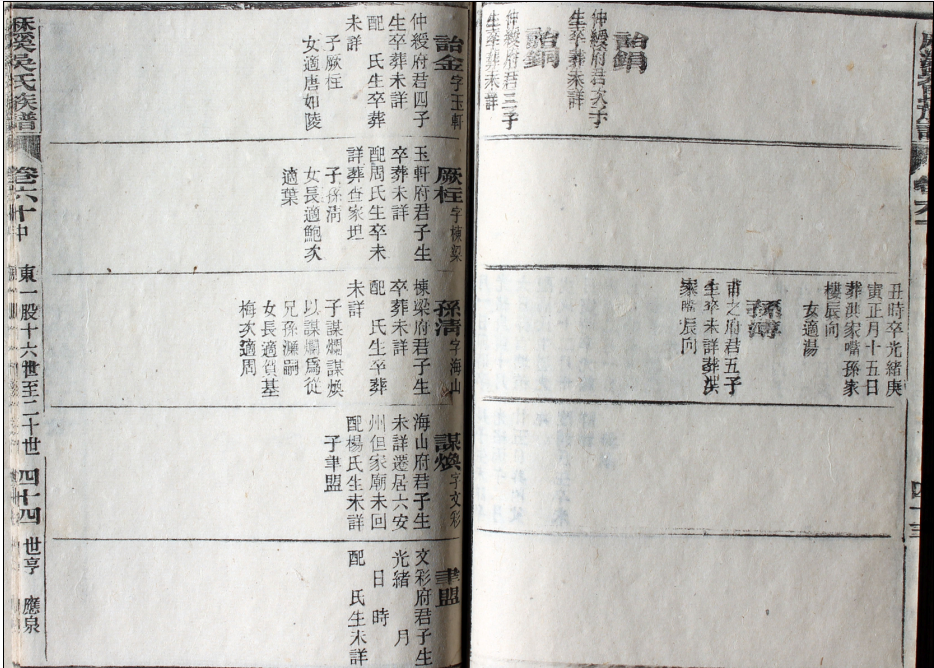 詒絹
仲綬府君次子
生卒葬未詳
詒鋇
仲綬府君三子
生卒葬未詳
丑時卒光緒庚
寅正月十五日
葬洪家嘴孫家
樓辰向
女適湯
孫薄
甫之府君五子
生卒未詳葬洪
家嘴辰向
詒金 字玉軒
仲綬府君四子
生卒葬未詳
配 氏生卒葬
未詳
子厥枉
女適唐如陵
厥枉 字棟梁
玉軒府君子生
卒葬未詳
配周氏生卒未
詳葬查家坦
子孫清
女長適鮑次
適葉
孫清 字海山
棟梁府君子生
卒葬未詳
配 氏生卒葬
未詳
子謀爛謀煥
以謀爛爲從
兄孫濂嗣
女長適黃基
梅次適周
謀煥 字文彩
海山府君子生
未詳遷居六安
州但家廟未回
配楊氏生未詳
子聿盟
聿盟
文彩府君子生
光緒 月
日 時
配 氏生未詳
吳氏族譜
卷六十中
東一股十六世至二十世
四十四
世亨 應泉